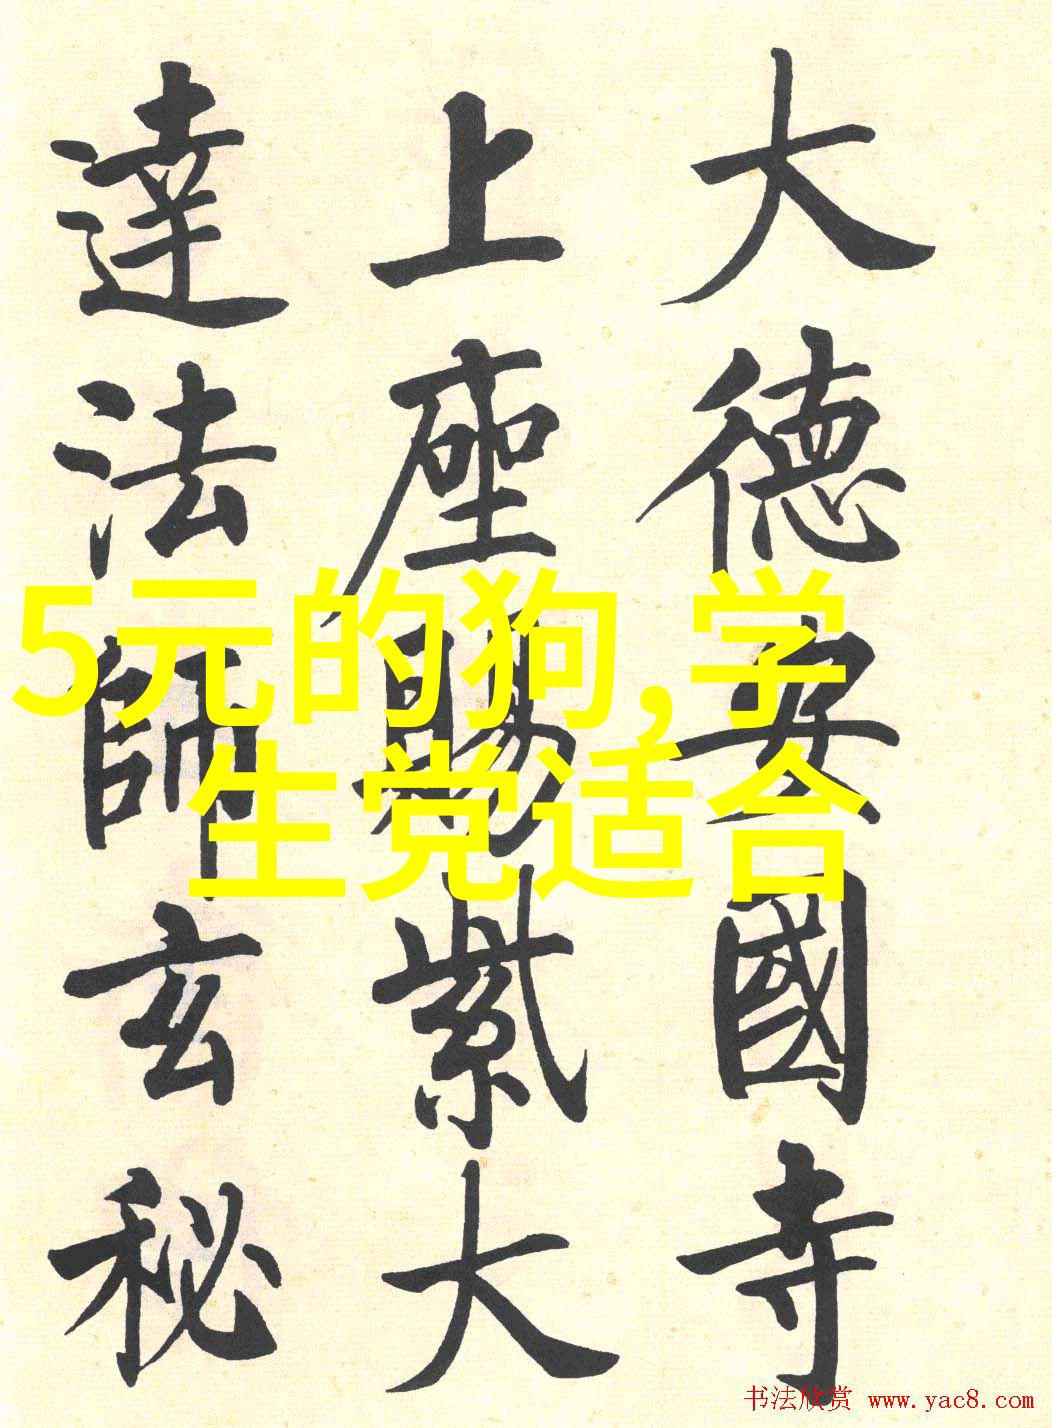 大德安國寺
上座賜紫大
達法師玄秘
5元的狗,学
生党适合
书法欣赏 www.yac8.com